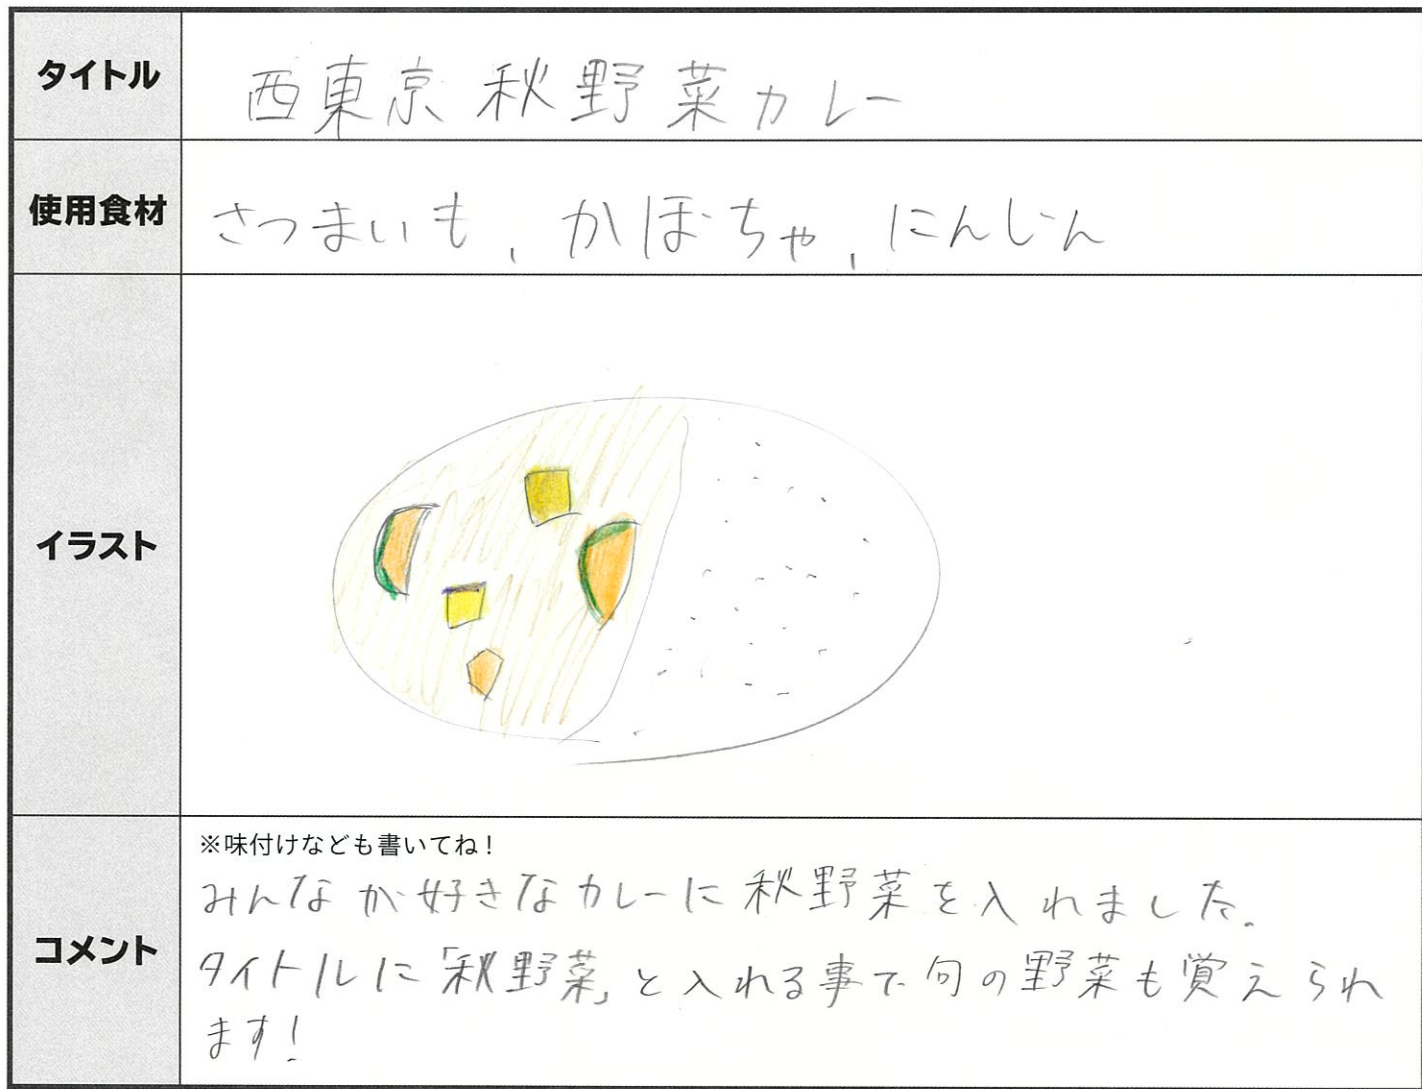 タイトル
西東京 秋野菜カレー
使用食材
さつまいも、かぼちゃ、にんじん
イラスト
コメント
※味付けなども書いてね!
みんなが好きなカレーに秋野菜を入れました。
タイトルに「秋野菜」と入れる事で旬の野菜も覚えられ
ます!